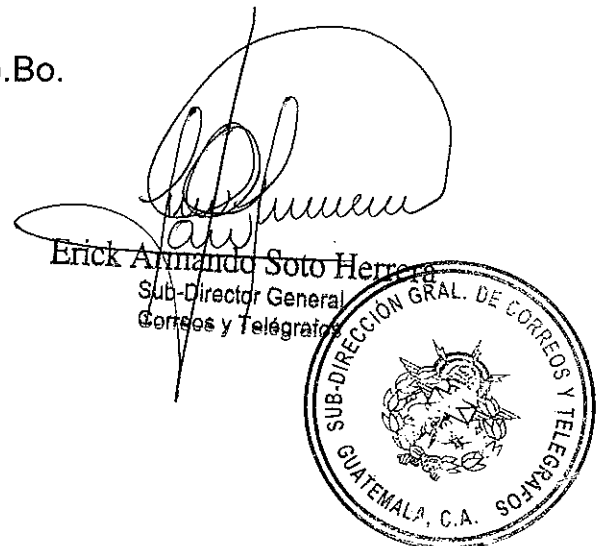 .Bo.
Erick Armando Soto Herrera
Sub-Director General
Correos y Telégrafos
SUB-DIRECCIÓN GRAL. DE CORREOS Y TELEGRAFOS
GUATEMALA, C.A.